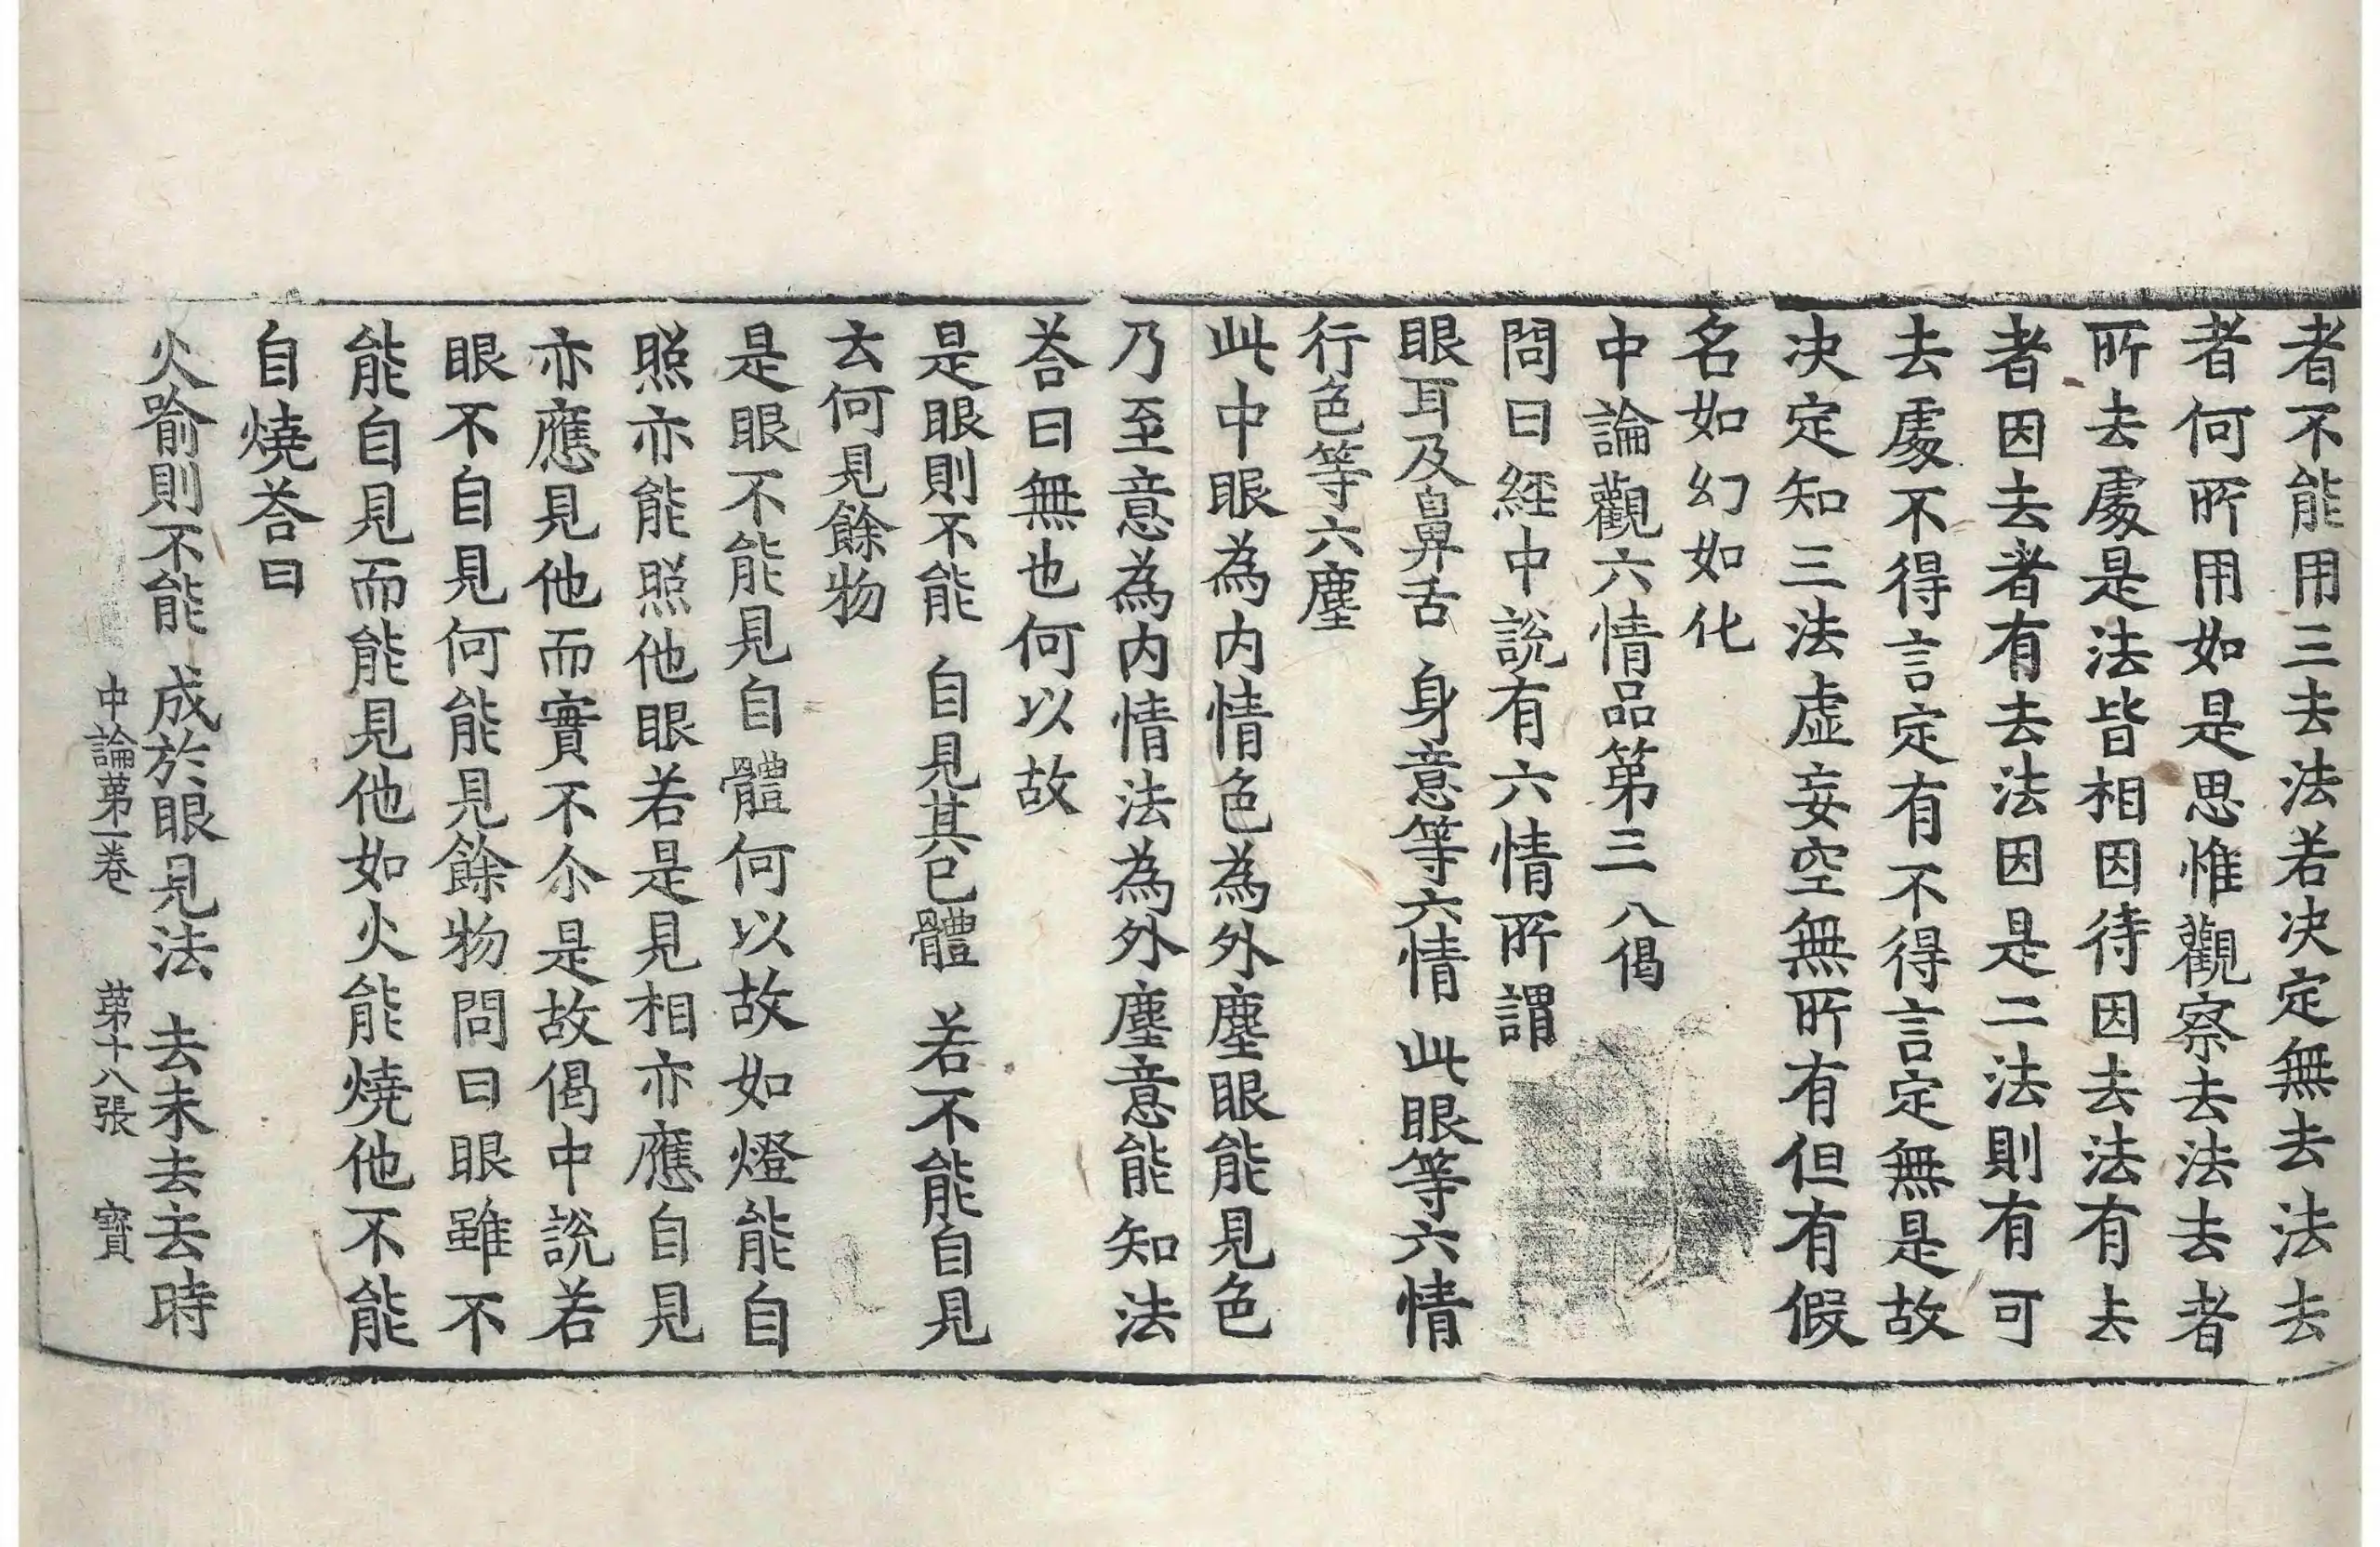 者不能用三去法若決定無去法去
者何所用如是思惟觀察去法去者
所去處是法皆相因待因去法有去
者因去者有去法因是二法則有可
去處不得言定有不得言定無是故
决定知三法虛妄空無所有但有假
名如幻如化
中論觀六情品第三 八偈
問曰經中說有六情所謂
眼耳及鼻舌 身意等六情 此眼等六情
行色等六塵
此中眼為內情色為外塵眼能見色
乃至意為內情法為外塵意能知法
荅曰無也何以故
是眼則不能 自見其己體 若不能自見
云何見餘物
是眼不能見自體何以故如燈能自
照亦能照他眼若是見相亦應自見
亦應見他而實不尒是故偈中說若
眼不自見何能見餘物問曰眼雖不
能自見而能見他如火能燒他不能
自燒荅曰
火喻則不能 成於眼見法 去未去去時
中論第一卷 第十八張 寳